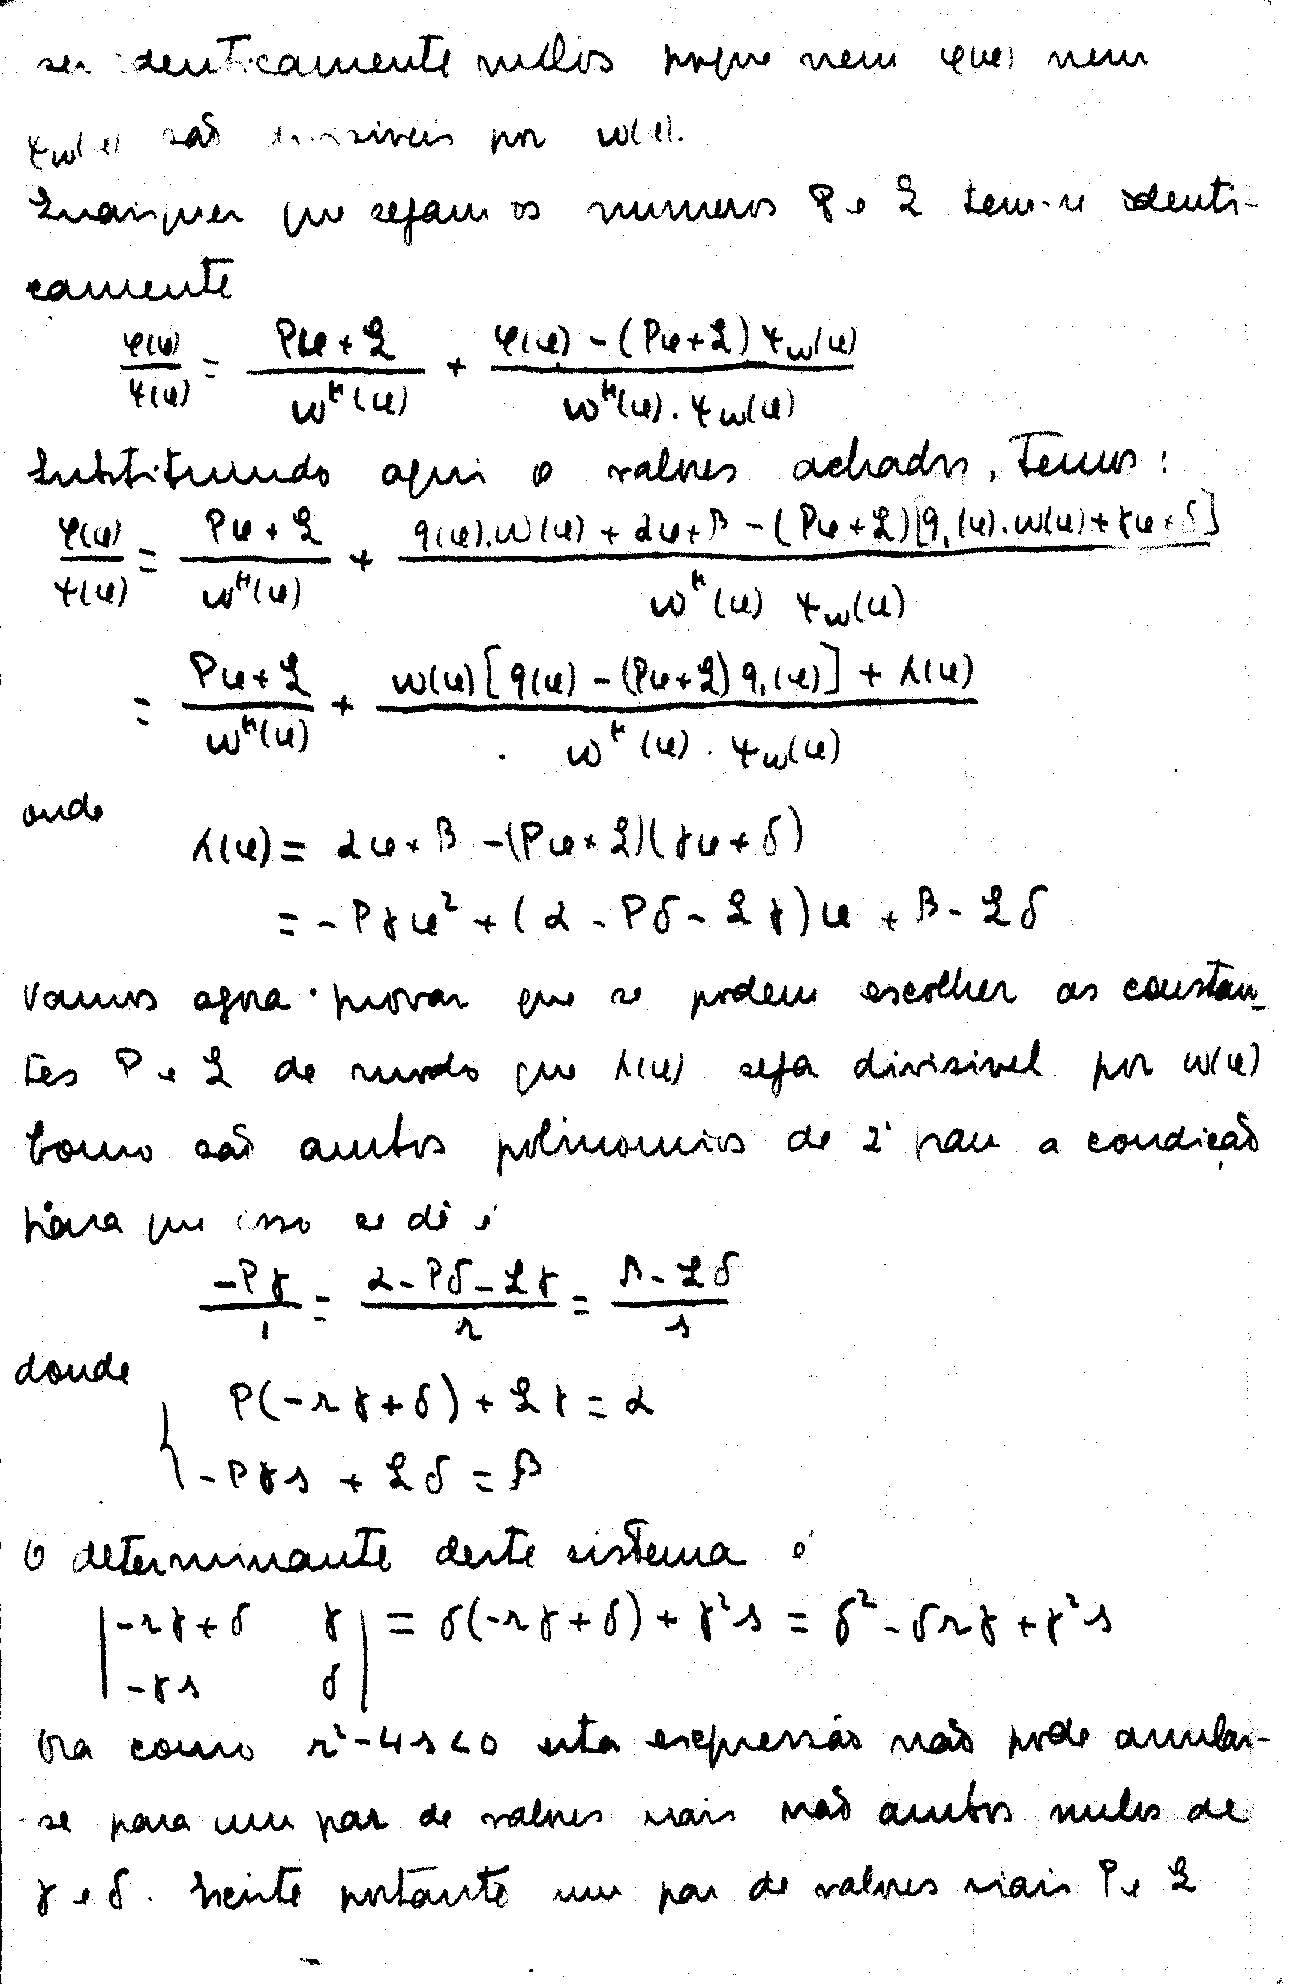 ser identicamente nulos porque nem φ(x) nem
ψω(x) são divisiveis por ω(x).
Quaisquer que sejam os numeros P e Q tem-se identi-
camente
φ(x)/ψ(x) = (Px+Q)/ω^k(x) + (φ(x) - (Px+Q) ψω(x))/(ω^k(x) . ψω(x))
Substituindo aqui o valores achados, temos:
φ(x)/ψ(x) = (Px+Q)/ω^k(x) + (q(x).ω(x) + αx+β - (Px+Q)[q₁(x).ω(x) + γx+δ])/(ω^k(x) ψω(x))
= (Px+Q)/ω^k(x) + (ω(x)[q(x) - (Px+Q) q₁(x)] + λ(x))/(ω^k(x) . ψω(x))
onde
λ(x) = αx+β -(Px+Q)(γx+δ)
= -Pγx² + (α - Pδ - Qγ)x + β - Qδ
Vamos agora provar que se podem escolher as constan-
tes P e Q de modo que λ(x) seja divisivel por ω(x)
Como são ambos polinomios de 2º grau a condição
para que isso se dê é
-Pγ/1 = (α-Pδ-Qγ)/r = (β-Qδ)/s
donde
{ P(-rγ+δ) + Qγ = α
-Pγs + Qδ = β
O determinante deste sistema é
|-rγ+δ γ| = δ(-rγ+δ) + γ²s = δ² - δrγ + γ²s
|-γs δ|
Ora como r²-4s<0 esta expressão não pode anular-
se para um par de valores reais não ambos nulos de
γ e δ. Existe portanto um par de valores reais P e Q